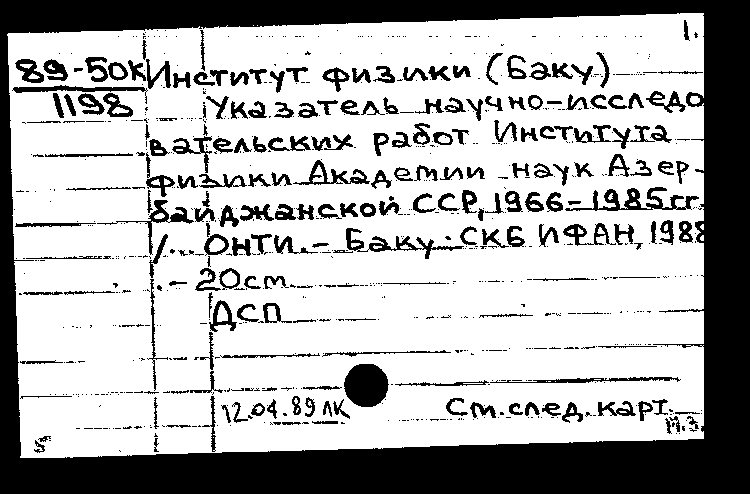 1.
89-50К Институт физики (Баку)
1198 Указатель научно-исследо
вательских работ Института
физики Академии наук Азер-
байджанской ССР, 1966-1985гг.
/... ОНТИ.- Баку: СКБ ИФАН, 1988
.- 20см
ДСП
12.04.89 ЛК См.след.карт.
М.З.
5